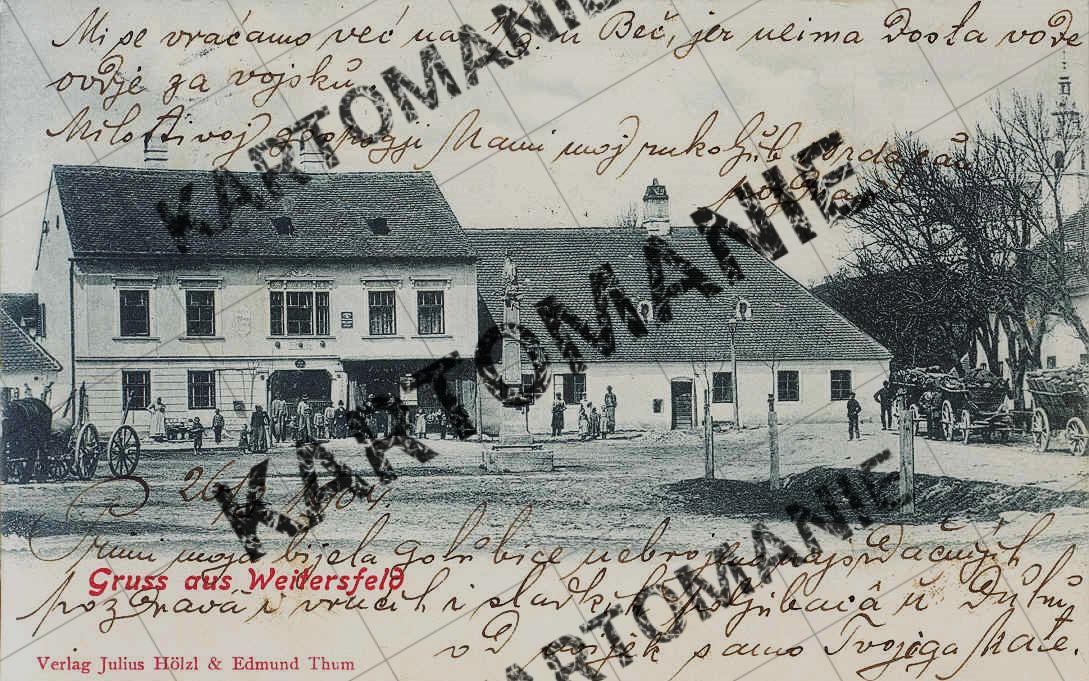 Mi se vraćamo već na u Beč, jer neima dosta vode
ovdje za vojsku.
Milostivoj gospogji Mami moj rukoljub Srdačan
pozdrav
26/8 1904.
Primi moja bijela golubice nebrojeno najsrdačnijih
pozdravâ i vrućih i sladkih poljubacâ u Dužku
od uvijek samo Tvojega Mate.
Gruss aus Weitersfeld
Verlag Julius Hölzl & Edmund Thum
KARTOMANIE
KARTOMANIE
KARTOMANIE
KARTOMANIE